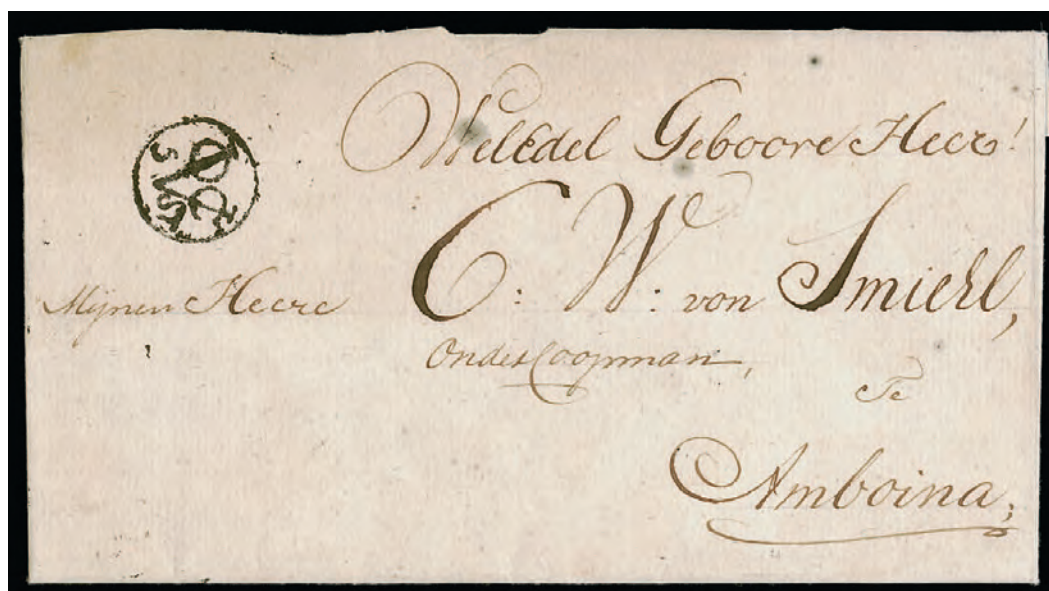 WelEdel Geboore Heer!
Mijnen Heere
C: W: von Smiehl,
Ondercoopman,
Te
Amboina,